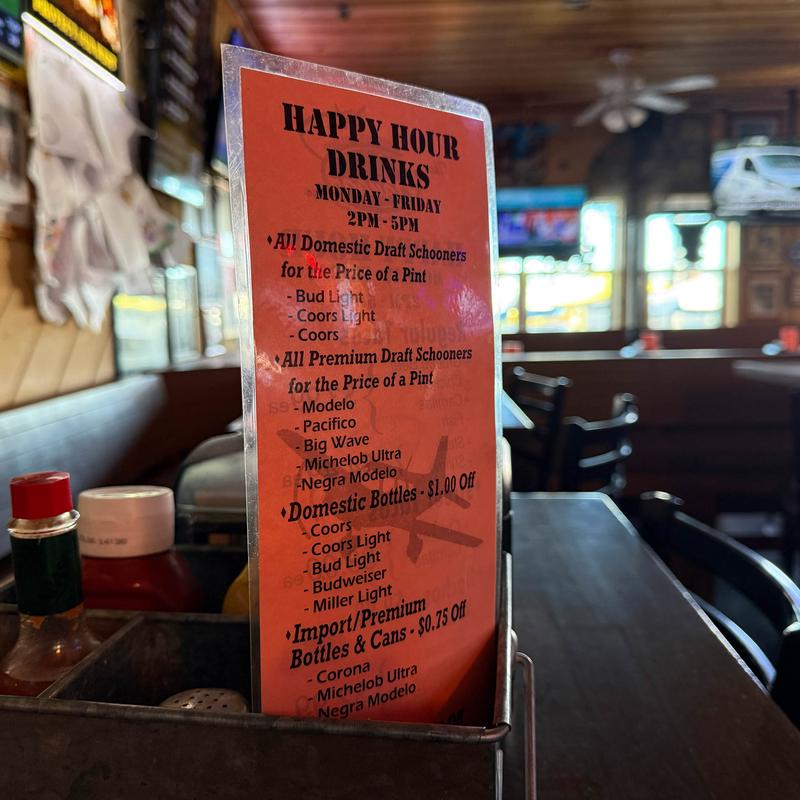 HAPPY HOUR
DRINKS
MONDAY - FRIDAY
2PM - 5PM
♦All Domestic Draft Schooners
for the Price of a Pint
- Bud Light
- Coors Light
- Coors
♦All Premium Draft Schooners
for the Price of a Pint
- Modelo
- Pacifico
- Big Wave
- Michelob Ultra
-Negra Modelo
♦Domestic Bottles - $1.00 Off
- Coors
- Coors Light
- Bud Light
- Budweiser
- Miller Light
♦Import/Premium
Bottles & Cans - $0.75 Off
- Corona
- Michelob Ultra
- Negra Modelo